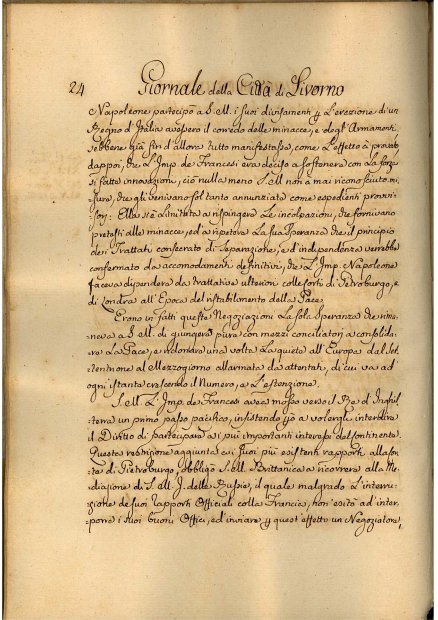 24 Giornale della Città di Livorno
Napoleone partecipò a S. M. i suoi divisamenti p l'erezione di un
Regno d'Italia avessero il corredo delle minacce, e degl'Armamenti
sebbene già fin d'allora tutto manifestasse, come l'effetto à provato
dappoi, che L'Imp. de Francesi era deciso a sostenere con la forza
si fatte innovazioni, ciò nulla meno S. M. non à mai riconosciuto mi
sure, che gli venivano sol tanto annunziate come espedienti provvi
sorj: Ella s'è limitata a rispingere Le incolpazioni, che fornivano
pretesti alle minacce, ed a ripetere La sua Speranza che il principio
dei Trattati consecrato di Separazione, e d'indipendenza verrebbe
confermato da accomodamenti definitivi, che L'Imp. Napoleone
faceva dipendere da trattative ulteriori colle Corti di Pietroburgo, e
di Londra all'Epoca del ristabilimento della Pace.
Erono in fatti queste Negoziazioni La sola Speranza che rima
neva a S. M. di giungere pure con mezzi conciliatorj a consolida
re La Pace, e ridonare una volta La quiete all'Europa dal Set
tentrione al Mezzogiorno allarmata da attentati, di cui va ad
ogni istante crescendo il Numero, e L'estenzione.
S. M. L'Imp. de Francesi avea mosso verso il Re d'Inghil
terra un primo passo pacifico, insistendo però a volergli interdire
il Diritto di partecipare ai più importanti interessi del continente.
Questa restrizione aggiunta ai suoi più esistenti rapporti alla Cor
te di Pietroburgo obbligò S. M. Brittanica a ricorrere alla Me
diazione di S. M. I. delle Russie, il quale malgrado L'interru
zione de suoi Rapporti Officiali colla Francia, non esitò ad'inter
porre i suoi buoni Offici, ed'inviare p quest'effetto un Negoziatore,